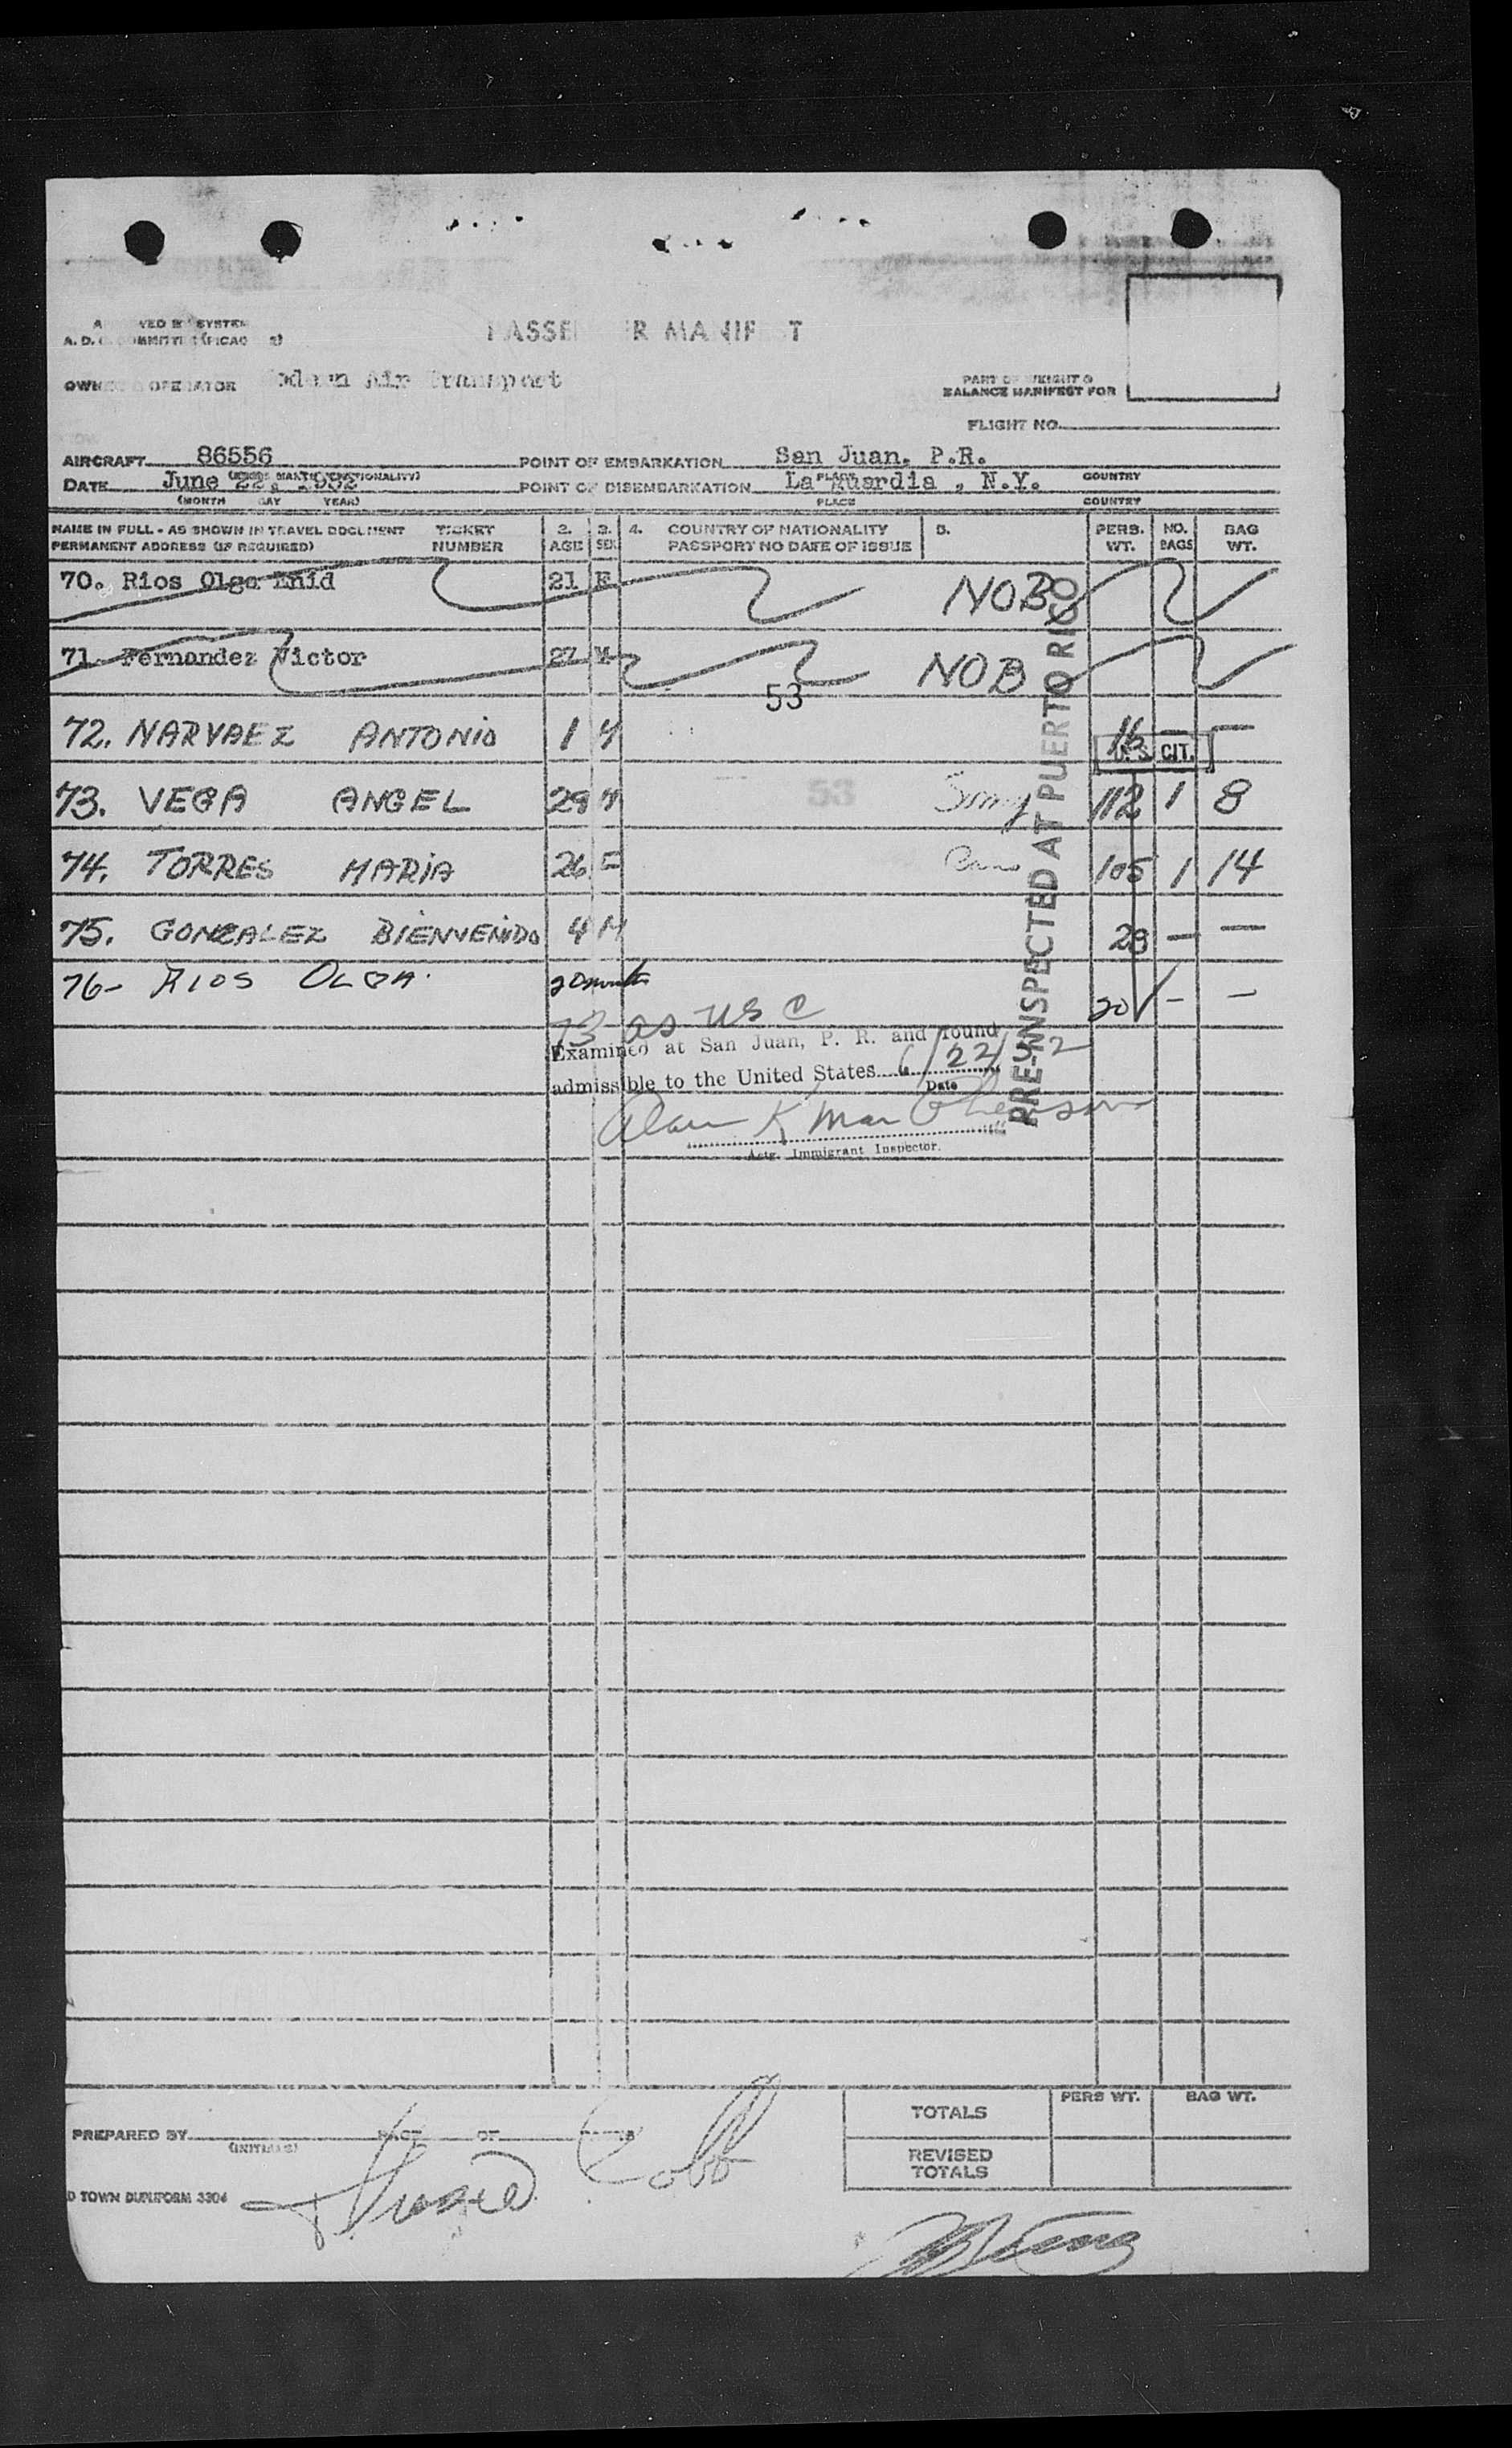 PASSE R MANIF T
OWN OPERATOR odern Air Transport
PART OF WEIGHT &
BALANCE MANIFEST FOR
FLIGHT NO.
AIRCRAFT 86556 POINT OF EMBARKATION San Juan, P.R.
DATE June 22, 1952 POINT OF DISEMBARKATION La Guardia , N.Y.
PLACE COUNTRY
(MONTH DAY YEAR) PLACE COUNTRY
NAME IN FULL - AS SHOWN IN TRAVEL DOCUMENT TICKET 2. 3. 4. COUNTRY OF NATIONALITY 5. PERS. NO. BAG
PERMANENT ADDRESS (IF REQUIRED) NUMBER AGE SEX PASSPORT NO DATE OF ISSUE WT. BAGS WT.
70. Rios Olga Enid 21 F NOB
71. Fernandez Victor 27 M NOB
53
72. NARVAEZ ANTONIO 1 M 16 —
U.S. CIT.
73. VEGA ANGEL 29 M 53 112 1 8
74. TORRES MARIA 26 F 105 1 14
75. GONZALEZ BIENVENIDO 4 M 28 — —
76- RIOS OLGA. 20 months 20 - -
PRE-INSPECTED AT PUERTO RICO
73 as USC
Examined at San Juan, P. R. and found
admissible to the United States 6/22/52
Date
Actg. Immigrant Inspector.
PREPARED BY PAGE OF
(INITIALS)
Cobb
D TOWN DUPLIFORM 3304
PERS WT. BAG WT.
TOTALS
REVISED
TOTALS